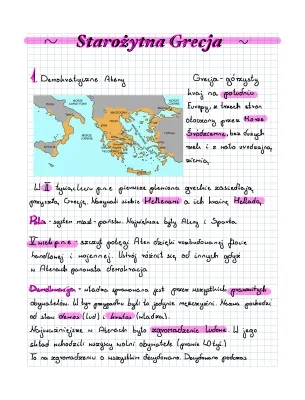 ~ Starożytna Grecja ~
1. Demokratyczne Ateny
Grecja - górzysty
kraj na południu
Europy, z trzech stron
otoczony przez Morze
Śródziemne, bez dużych
rzek i z mało urodzajną
ziemią.
W II tysiącleciu p.n.e. pierwsze plemiona greckie zasiedlają
przyszłą Grecję. Nazywali siebie Hellenami a ich krainę Helladą.
Polis - system miast-państw. Największe były Ateny i Sparta.
V wiek p.n.e. - szczyt potęgi Aten dzięki rozbudowanej flocie
handlowej i wojennej. Ustrój różnił się od innych gdyż
w Atenach panowała demokracja
Demokracja - władza sprawowana jest przez wszystkich prawowitych
obywateli. W tym przypadku byli to jedynie mężczyźni. Nazwa pochodzi
od słów demos (lud) i kratos (władza).
Najważniejsze w Atenach było zgromadzenie ludowe. W jego
skład wchodzili wszyscy wolni obywatele (prawie 40 tyś.)
To na zgromadzeniu o wszystkim decydowano. Decydowano podczas